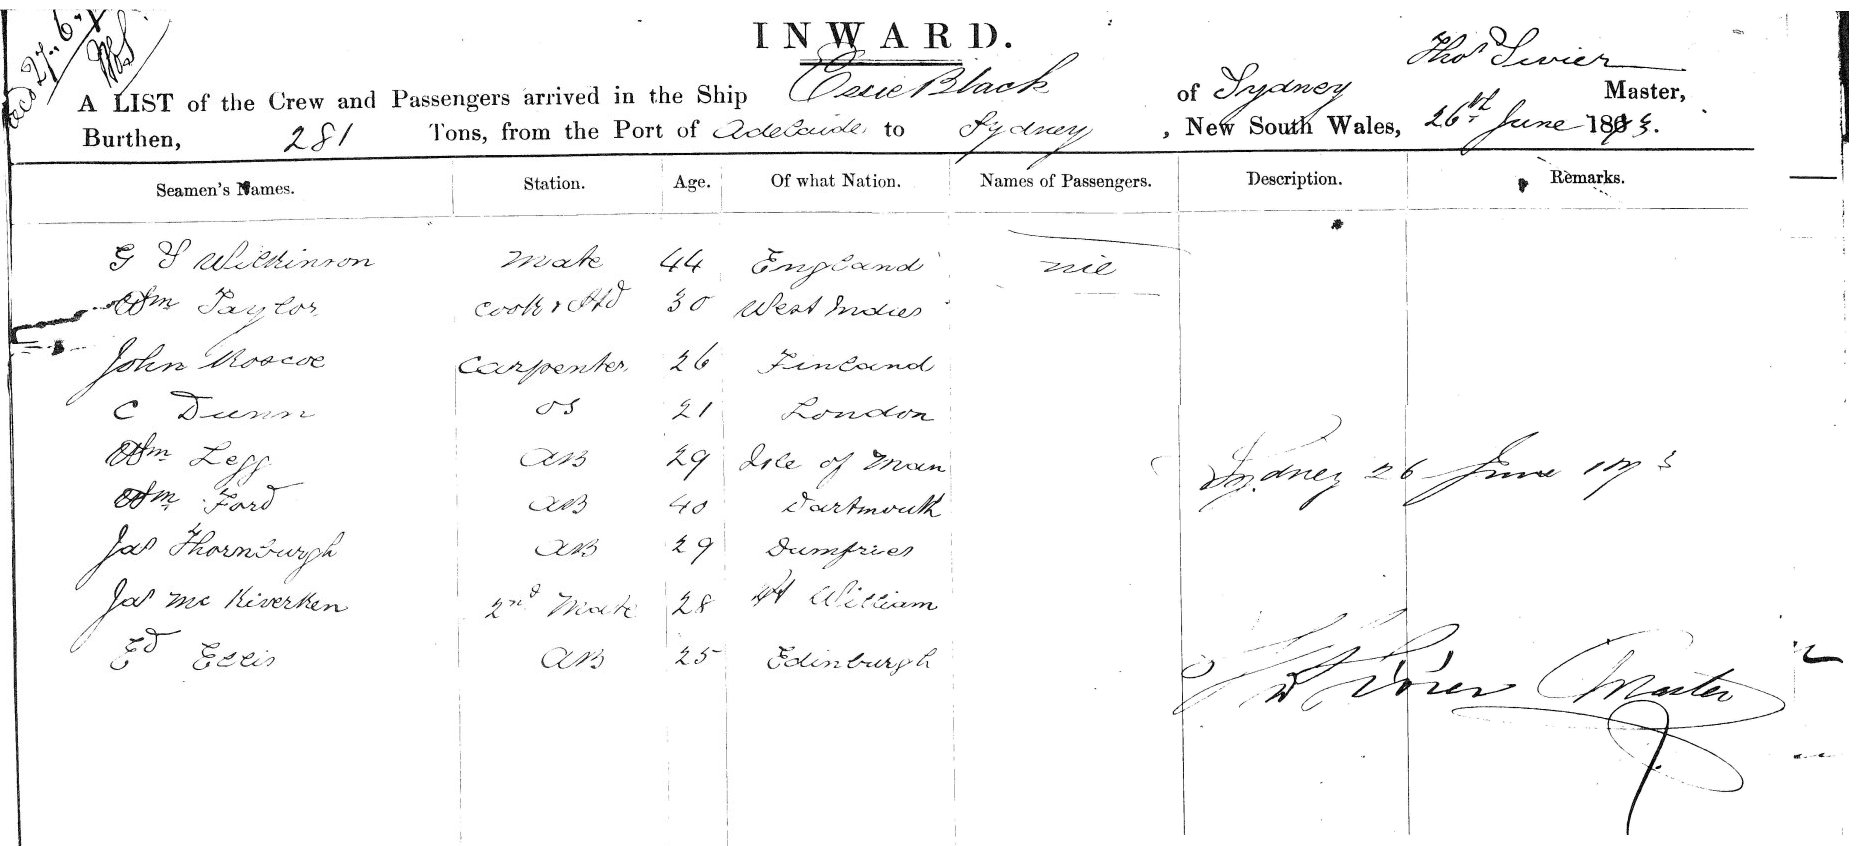 recd 27.6.73
INWARD.
Thos Sivier
A LIST of the Crew and Passengers arrived in the Ship Essie Black of Sydney Master,
Burthen, 281 Tons, from the Port of Adelaide to Sydney, New South Wales, 26th June 1873.
Seamen's Names. Station. Age. Of what Nation. Names of Passengers. Description. Remarks.
G S Wilkinson Mate 44 England nil
Wm Taylor Cook & Std 30 West Indies
John Roscoe Carpenter 26 Finland
C Dunn OS 21 London
Wm Legg AB 29 Isle of Man
Sydney 26 June 1873
Wm Ford AB 40 Dartmouth
Jas Thornburgh AB 29 Dumfries
Jas McKiverken 2nd Mate 28 Ft William
Ed Ellis AB 25 Edinburgh
Master